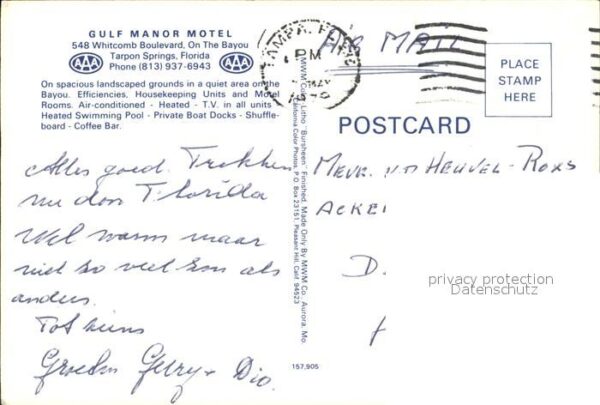 GULF MANOR MOTEL
548 Whitcomb Boulevard, On The Bayou
Tarpon Springs, Florida
Phone (813) 937-6943
AAA
AAA
On spacious landscaped grounds in a quiet area on the
Bayou. Efficiencies, Housekeeping Units and Motel
Rooms. Air-conditioned - Heated - T.V. in all units
Heated Swimming Pool - Private Boat Docks - Shuffle-
board - Coffee Bar.
Alles goed. Trekken
nu door Florida
Wel warm maar
niet zo veel zon als
anders.
Tot ziens
Groeten Gerry + Dio.
MWM Color-Litho "Bursheen" Finished. Made Only By MWM Co., Aurora, Mo.
California Color Photos, P.O. Box 23151, Pleasant Hill, Calif. 94523
157,905
TAMPA, FL
PM
MAY
AIR MAIL
PLACE
STAMP
HERE
POSTCARD
MEVR. V.D HEUVEL-ROXS
D.
privacy protection
Datenschutz